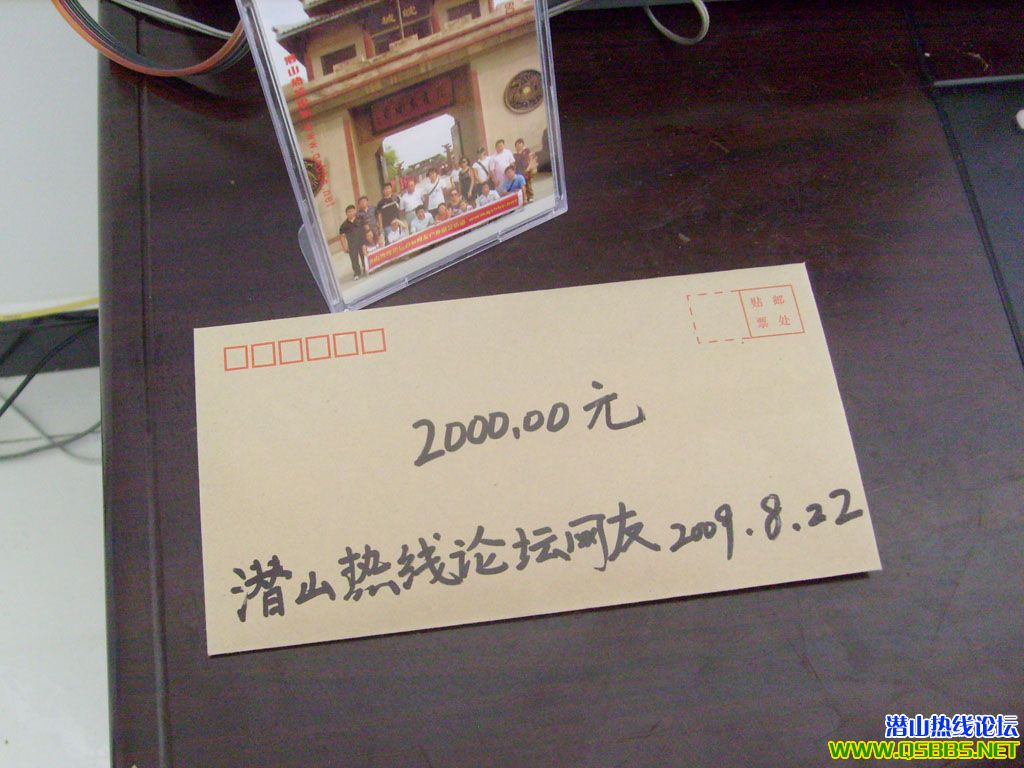 贴 邮
票 处
2000.00 元
潜山热线论坛网友 2009.8.22
潜山热线论坛
WWW.QSBBS.NET